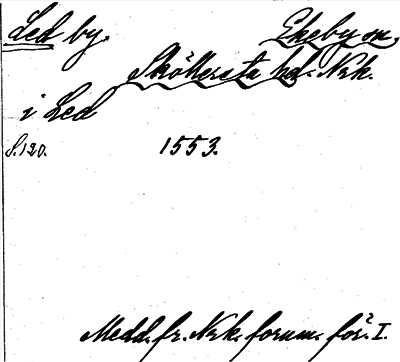 Led by. Ekeby sn,
Sköllersta hd. Nrk.
i Led
S. 120. 1553.
Medd. fr. Nrk. fornm. för. I.